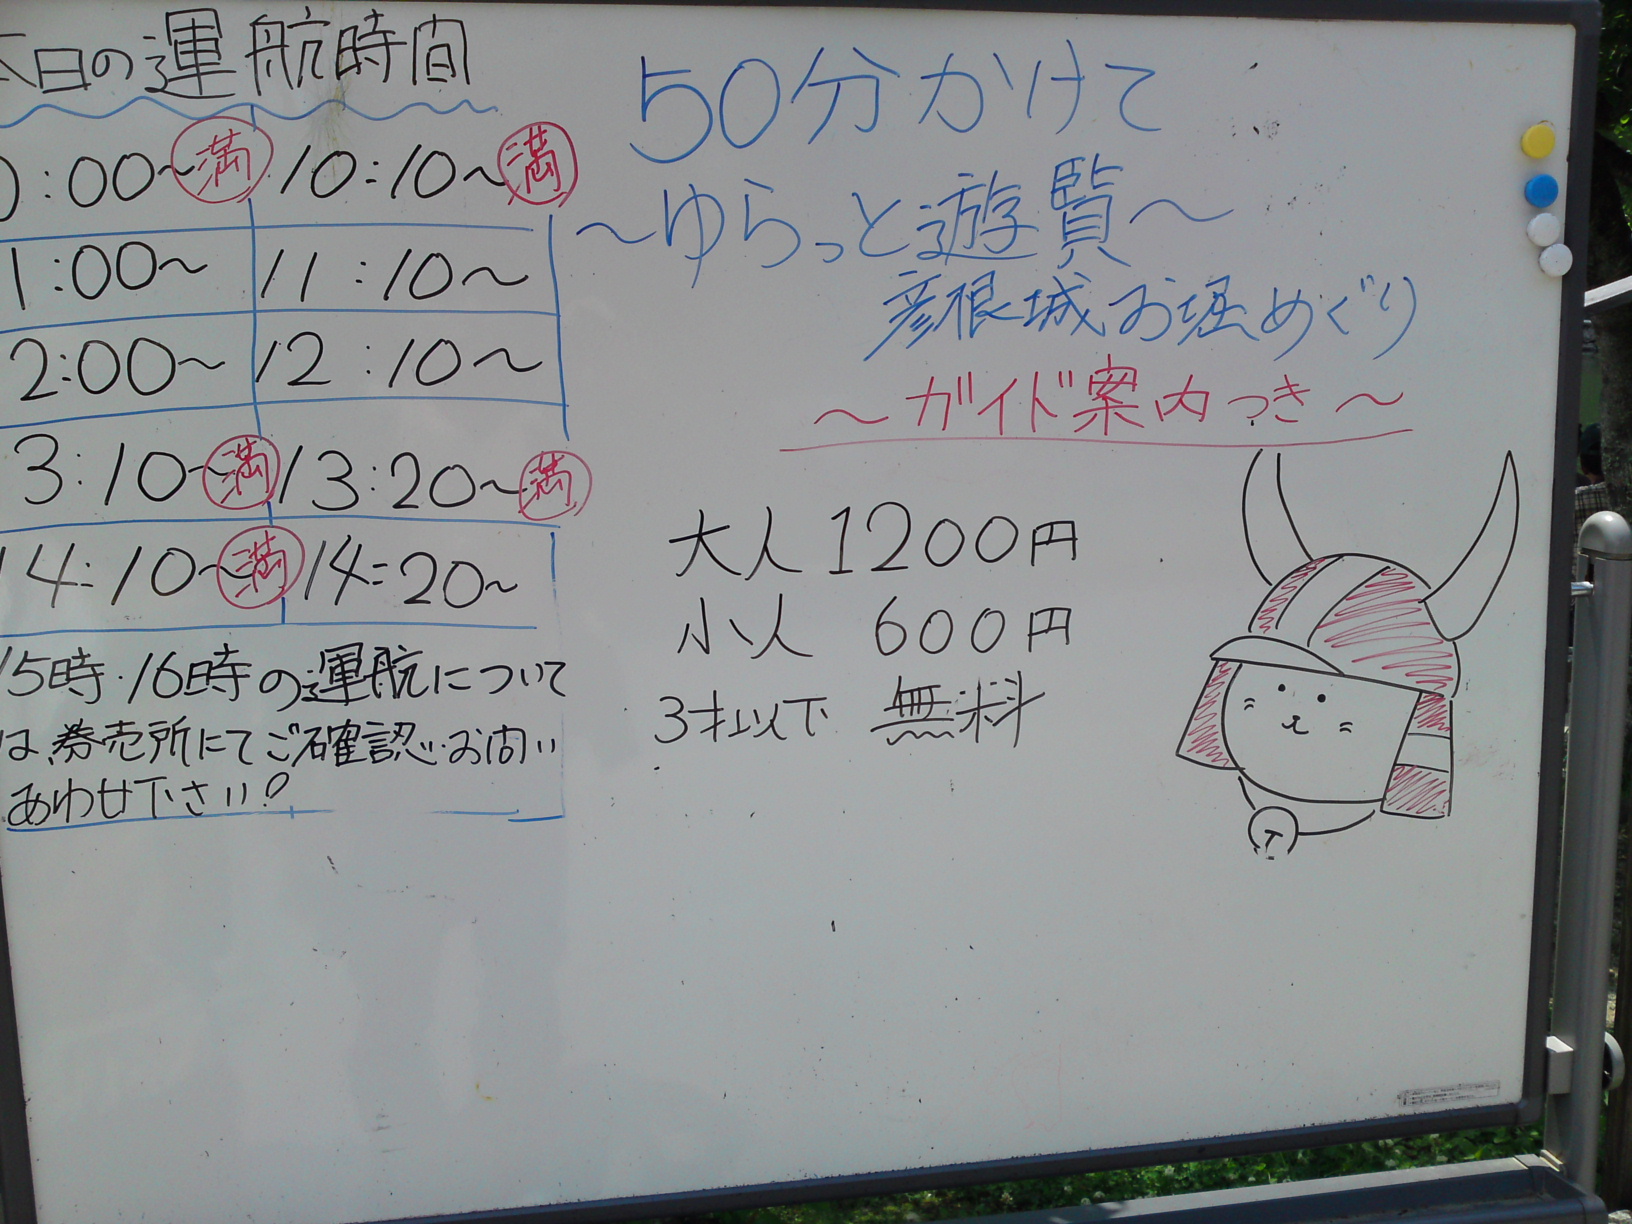 本日の運航時間
0:00〜 満 10:10〜 満
1:00〜 11:10〜
2:00〜 12:10〜
3:10〜 満 13:20〜 満
14:10〜 満 14:20〜
15時・16時の運航について
は、券売所にてご確認・お問い
あわせ下さい!
50分かけて
〜ゆらっと遊覧〜
彦根城お堀めぐり
〜ガイド案内つき〜
大人1200円
小人 600円
3才以下 無料